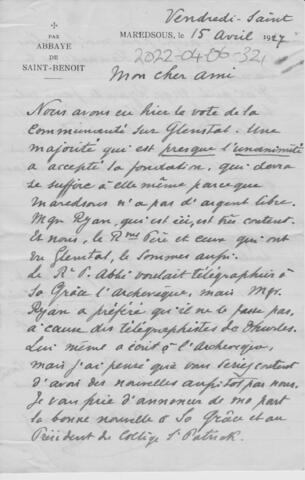 PAX
ABBAYE
DE
SAINT-BENOIT
Vendredi-Saint
MAREDSOUS, le 15 Avril 1927
2022-04-06-32,
Mon cher ami
Nous avons eu hier le vote de la
Communauté sur Glenstal. Une
majorité qui est presque l'unanimité
a accepté la fondation, qui devra
se suffire à elle même parceque
Maredsous n'a pas d'argent libre.
Mgr Ryan, qui est ici, est très content.
Et nous, le Rme Père et ceux qui ont
vu Glenstal, le sommes aussi.
Le R. P. Abbé voulait télégraphier à
Sa Grâce l'Archevêque, mais Mgr.
Ryan a préféré qu'il ne le fasse pas,
à cause des télégraphistes de Thurles.
Lui même a écrit à l'Archevêque,
mais j'ai pensé que vous seriez content
d'avoir des nouvelles aussitot par nous.
Je vous prie d'annoncer de ma part
la bonne nouvelle à Sa Grâce et au
Président de Collège St Patrick.